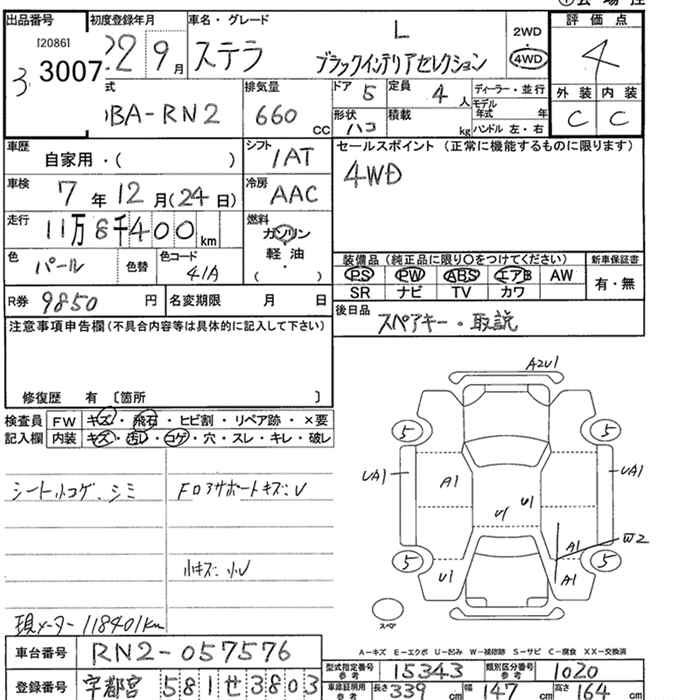 会場控
出品番号 初度登録年月 車名・グレード 評価点
[20861
3 3007 22 9月 ステラ L ブラックインテリアセレクション 2WD 4WD 4
外装 内装
C C
式 排気量 ドア 5 定員 4人 ディーラー・並行
DBA-RN2 660cc 形状 ハコ 積載 kg モデル年式 年
ハンドル 左・右
車歴 自家用・( ) シフト IAT セールスポイント (正常に機能するものに限ります)
車検 7年12月(24日) 冷房 AAC 4WD
走行 11万8千400km 燃料 ガソリン 軽油 ・( )
色 パール 色替 色コード 41A
装備品 (純正品に限り○をつけてください) 新車保証書
PS PW ABS エアB AW 有・無
SR ナビ TV カワ
R券 9850円 名変期限 月 日
後日品 スペアキー・取説
注意事項申告欄(不具合内容等は具体的に記入して下さい)
修復歴 有 〔箇所 〕
検査員記入欄 FW キズ・飛石・ヒビ割・リペア跡・×要
内装 キズ・汚レ・コゲ・穴・スレ・キレ・破レ
シート小コゲ、シミ FロアサポートキズシV
小キズ・小U
現メーター 118401km
A2U1
5 5
UA1 A1 U1 U1 UA1
W2
A1
5 5
U1 A1
スペア
A-キズ E-エクボ U-凹み W-補修跡 S-サビ C-腐食 XX-交換済
車台番号 RN2-057576
型式指定番号 参考 15343 類別区分番号 参考 1020
登録番号 宇都宮 581 せ 3803
車庫証明用 参考 長さ 339cm 幅 147cm 高さ 164cm